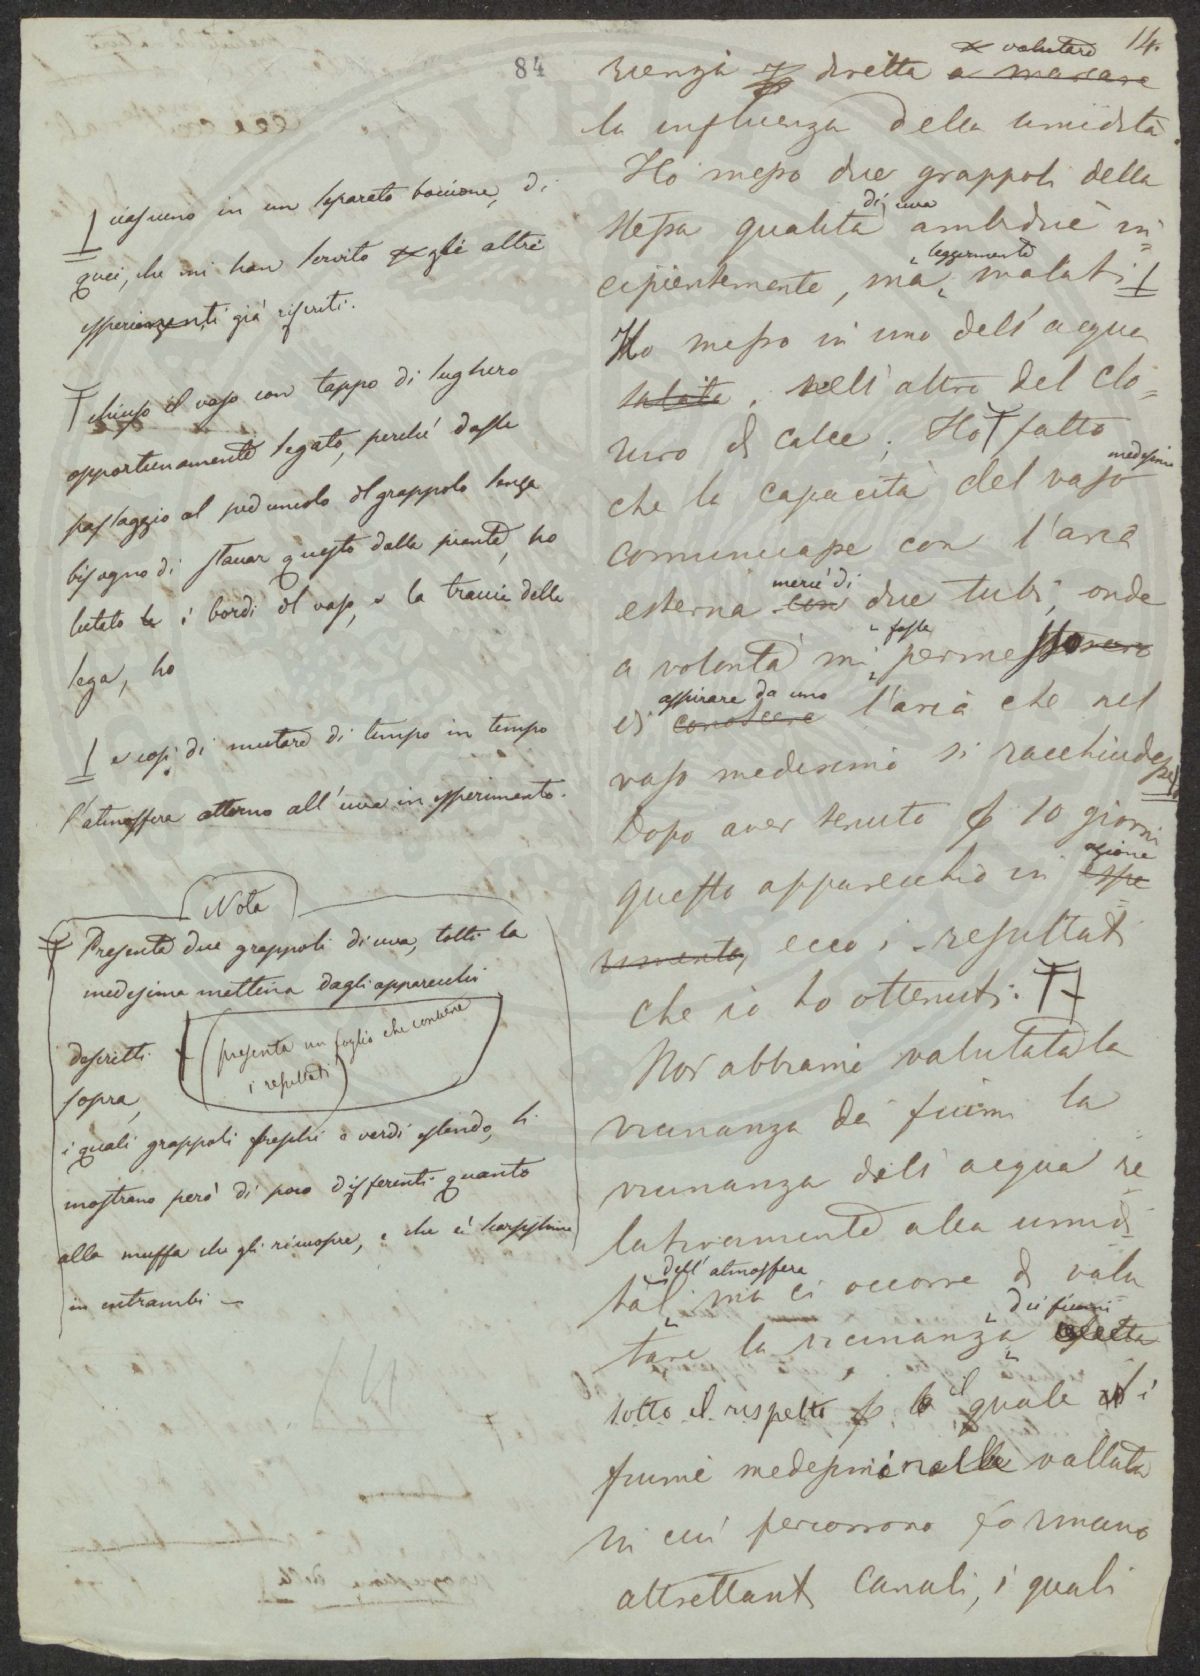 14.
84
valutare
rienza diretta a marcare
la influenza della umidità.
Ho messo due grappoli della
di uva
stessa qualità ambidue in=
leggermente
cipientemente, ma malati
Ho messo in uno dell'acqua
salata, nell'altro del clo=
ruro di calce; Ho fatto
medesimo
che la capacità del vaso
comunicasse con l'aria
mercé di
esterna con due tubi, onde
fosse
a volontà mi permesso
aspirare da uno
di conoscere l'aria che nel
vaso medesimo si racchiudesse
Dopo aver tenuto p 10 giorni
azione
questo apparecchio in espe
rimento, ecco i resultati
che io ho ottenuti.
Noi abbiamo valutata la
vicinanza dei fiumi la
vicinanza dell'acqua re=
lativamente alla umidi=
dell'atmosfera
tà ma ci occorre di valu
dei fiumi
tare la vicinanza
sotto il rispetto p il quale i
fiumi medesimi nelle vallate
in cui percorrono formano
altrettanti canali, i quali
ciascuno in un separato boccione, di
quei, che mi han servito gli altri
esperimenti già riferiti.
chiuso il vaso con tappo di sughero
opportunamente legato, perché dasse
passaggio al peduncolo del grappolo senza
bisogno di staccar questo dalla pianta, ho
lutato i bordi del vaso, e la traccia della
sega, ho
e così di mutare di tempo in tempo
l'atmosfera attorno all'uva in esperimento.
Nota
Presenta due grappoli di uva, tolti la
medesima mattina dagli apparecchi
descritti
presenta un foglio che contiene
i resultati
sopra,
i quali grappoli freschi e verdi essendo, si
mostrano però di poco differenti quanto
alla muffa che gli ricuopre, e che è
in entrambi —